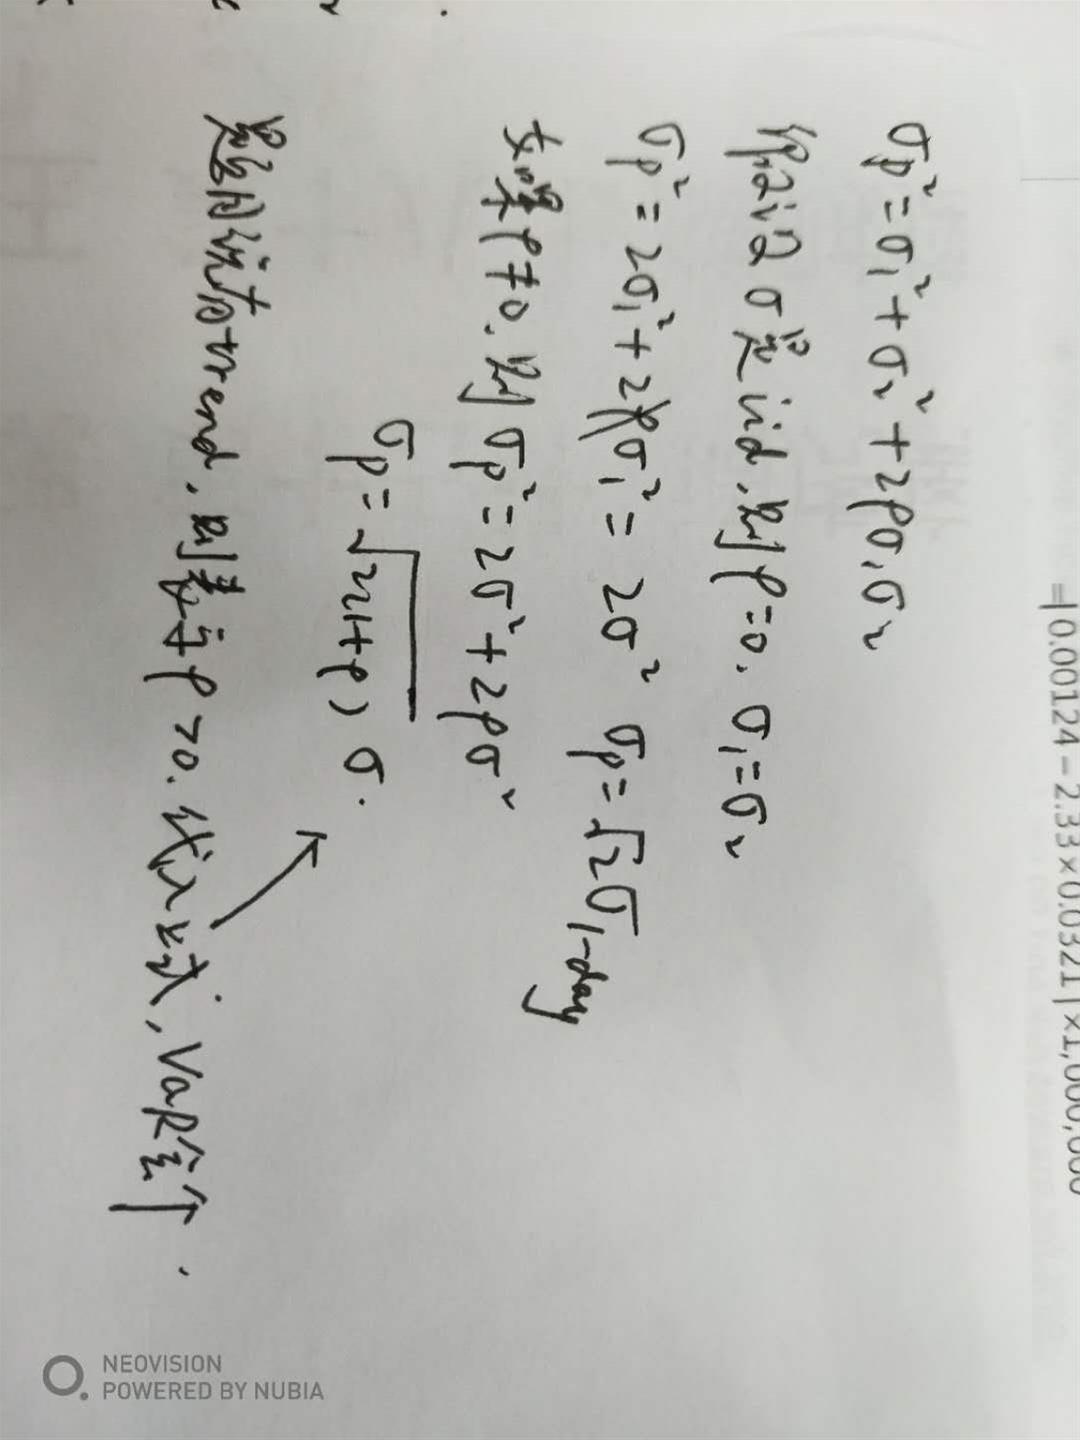 =|0.00124-2.33×0.0321|×1,000,000
σp²=σ₁²+σ₂²+2ρσ₁σ₂
假设σ是iid,则ρ=0. σ₁=σ₂
σp²=2σ₁²+2ρσ₁²= 2σ² σp=√2σ1-day
如果ρ≠0.则σp²=2σ²+2ρσ²
σp=√2(1+ρ) σ.
题目说有trend,则表示ρ>0.代入公式,VaR会↑.
NEOVISION
POWERED BY NUBIA